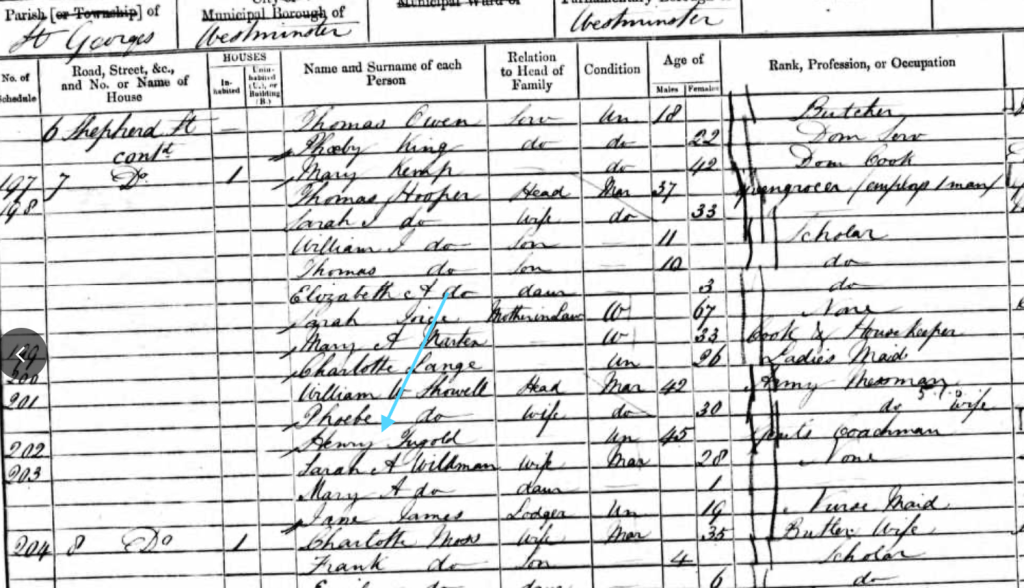 Parish [or Township] of City or Municipal Borough of Municipal Ward of Parliamentary Borough of
St Georges Westminster Westminster
No. of Schedule Road, Street, &c., and No. or Name of House HOUSES In-habited Unin-habited (U.), or Building (B.) Name and Surname of each Person Relation to Head of Family Condition Age of Males Females Rank, Profession, or Occupation
6 Shepherd St — Thomas Owen Serv Un 18 Butcher
contd Phœby King do do 22 Dom Serv
197 7 Do 1 Mary Kemp — do 42 Dom Cook
198 Thomas Hooper Head Mar 37 Greengrocer (employs 1 man)
Sarah do Wife do 33
William J do Son — 11 Scholar
Thomas do Son — 10 do
Elizabeth A do daur — 3 do
Sarah Motherinlaw W 67 None
199 Mary A Marten — W 33 Cook & Housekeeper
200 Charlotte Lange Un 26 Ladies Maid
201 William W Showell Head Mar 42 Army Messman
Phoebe do Wife do 30 do wife
202 Henry Ingold Un 45 Coachman
203 Sarah A Wildman Wife Mar 28 None
Mary A do daur — 1
Jane James Lodger Un 19 Nurse Maid
204 8 Do 1 Charlotte Moss Wife Mar 35 Butler Wife
Frank do Son — 4 Scholar
do daur 6 do